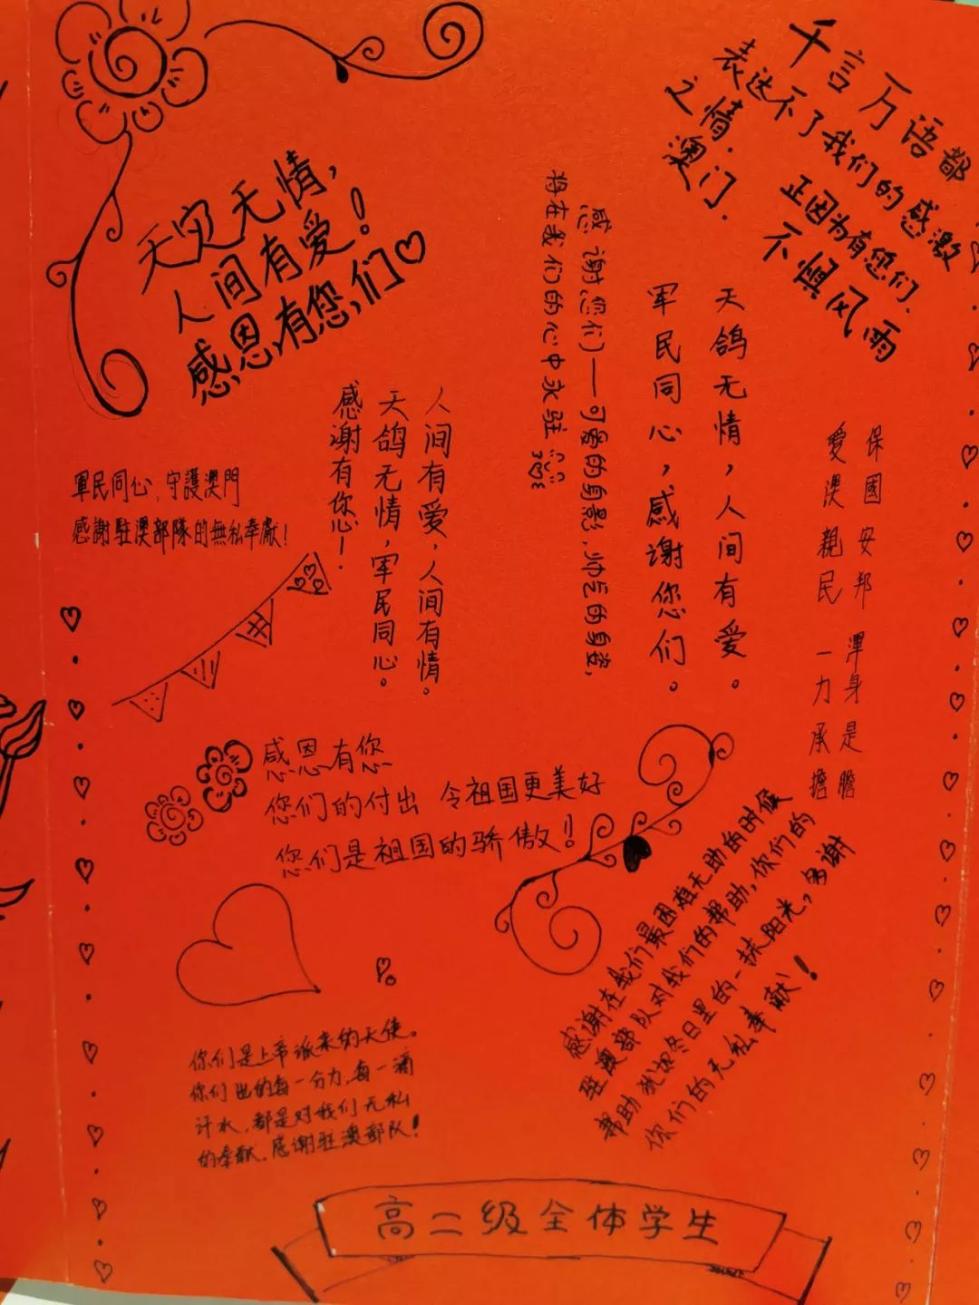 天灾无情，
人间有爱！
感恩有您们
千言万语都
表达不了我们的感激
之情．
正因为有您们．
澳门．
不惧风雨
感谢您们——可爱的身影，帅气的身姿，
将在我们的心中永驻
天鸽无情，人间有爱。
军民同心，感谢您们。
人间有爱，人间有情。
天鸽无情，军民同心。
感谢有您！
軍民同心，守護澳門
感謝駐澳部隊的無私奉獻！
保國安邦 渾身是膽
愛澳親民 一力承擔
感恩有您
您们的付出 令祖国更美好
您们是祖国的骄傲！
感谢在我们最困难无助的时候
驻澳部队对我们的帮助，你们的
帮助犹如冬日里的一抹阳光，多谢
你们的无私奉献！
你们是上帝派来的天使。
你们出的每一分力，每一滴
汗水，都是对我们无私
的奉献。感谢驻澳部队！
高二级全体学生